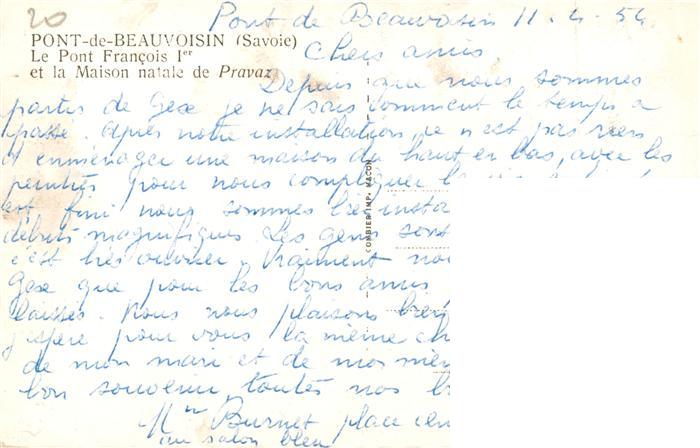 20
Pont de Beauvoisin 11.4.54
PONT-de-BEAUVOISIN (Savoie)
Le Pont François Ier
et la Maison natale de Pravaz
Chers amis
Depuis que nous sommes
partis de Gex je ne sais comment le temps a
passé. Après notre installation, ce n'est pas rien
d'enménager une maison du haut en bas, avec les
peintres pour nous compliquer
est fini nous sommes très
débuts magnifiques. Les gens sont
c'est très ouvrier. Vraiment
Gex que pour les bons amis
laissés. Nous nous plaisons bien
j'espère pour vous la même
de mon mari et de
bon souvenir, toutes nos
Mme Burnet place
au salon bleu
COMBIER IMP. MACON